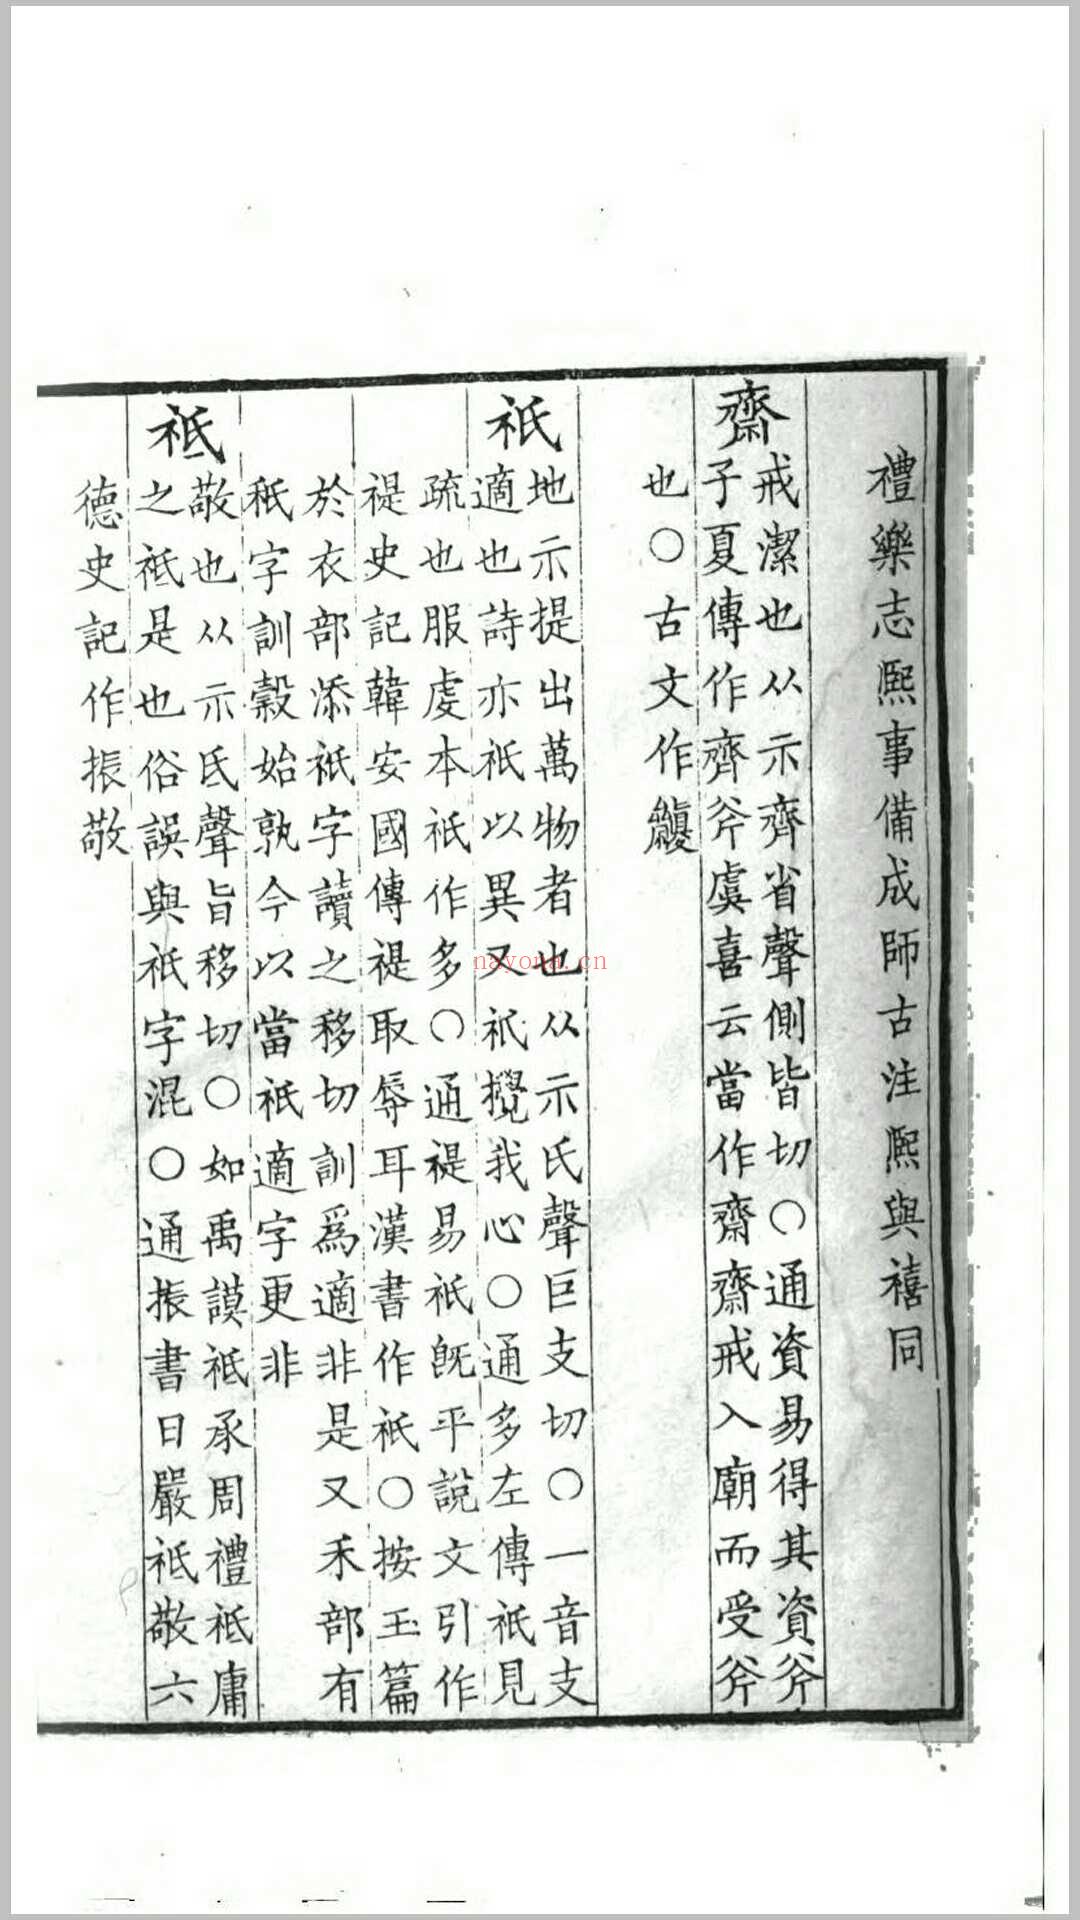 禮樂志熙事備成師古注熙與禧同
齋
戒潔也从示齊省聲側皆切〇通資易得其資斧
子夏傳作齊斧虞喜云當作齋齋戒入廟而受斧
也〇古文作
祇
地示提出萬物者也从示氏聲巨支切〇一音支
適也詩亦祇以異又祇攪我心〇通多左傳祇見
疏也服虔本祇作多〇通禔易祇旣平說文引作
禔史記韓安國傳禔取辱耳漢書作祇〇按玉篇
於衣部添祇字讀之移切訓爲適非是又禾部有
秖字訓穀始孰今以當祇適字更非
祗
敬也从示氐聲旨移切〇如禹謨祗承周禮祗庸
之祗是也俗誤與祇字混〇通振書日嚴祗敬六
德史記作振敬
nayona.cn